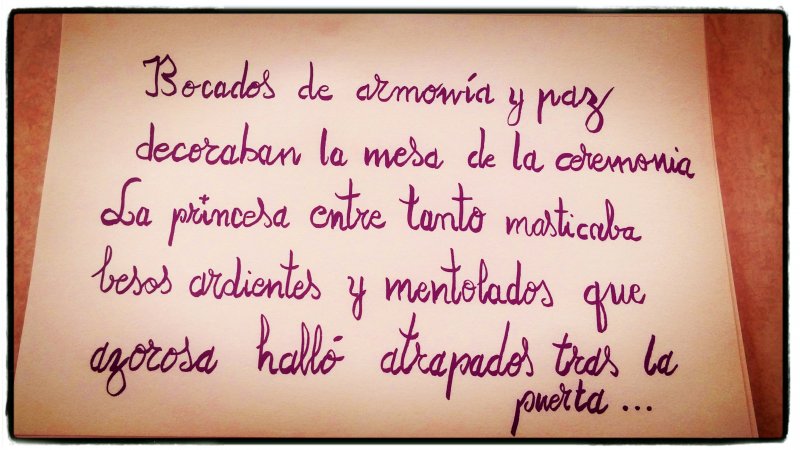 Bocados de armonía y paz
decoraban la mesa de la ceremonia
La princesa entre tanto masticaba
besos ardientes y mentolados que
azorosa halló atrapados tras la
puerta...